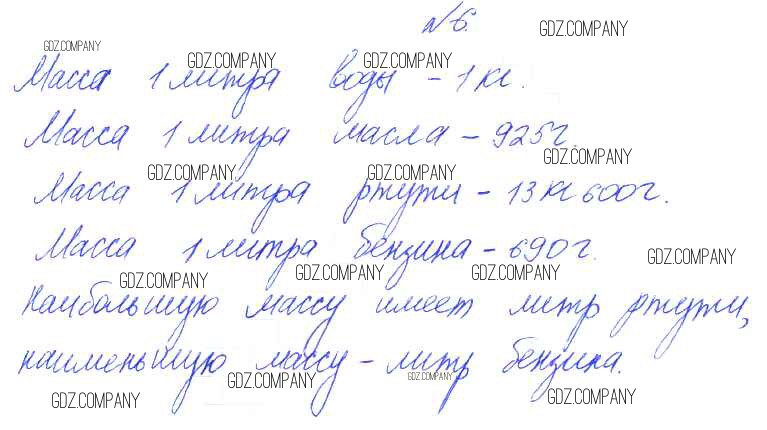 №6.
GDZ.COMPANY
GDZ.COMPANY
GDZ.COMPANY GDZ.COMPANY
Масса 1 литра воды – 1 кг.
Масса 1 литра масла – 925 г
GDZ.COMPANY
GDZ.COMPANY GDZ.COMPANY
Масса 1 литра ртути – 13 кг 600 г.
Масса 1 литра бензина – 690 г.
GDZ.COMPANY
GDZ.COMPANY GDZ.COMPANY GDZ.COMPANY
Наибольшую массу имеет литр ртути,
наименьшую массу – литр бензина.
GDZ.COMPANY GDZ.COMPANY
GDZ.COMPANY GDZ.COMPANY